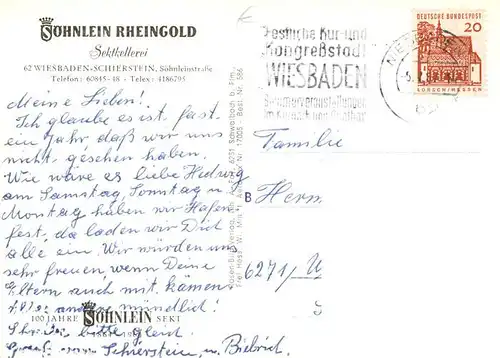 SÖHNLEIN RHEINGOLD
Sektkellerei
62 WIESBADEN-SCHIERSTEIN, Söhnleinstraße
Telefon: 60845-48 - Telex: 4186795
Meine Lieben!
Ich glaube es ist fast
ein Jahr daß wir uns
nicht gesehen haben.
Wie wäre es liebe Hedwig
am Samstag Sonntag u
Montag haben wir Hafen
fest, da laden wir Dich
alle ein. Wir würden uns
sehr freuen, wenn Deine
Eltern auch mit kämen
Alles andere mündlich!
bitte gleich.
Schierstein, u. Biebrich
100 JAHRE SÖHNLEIN SEKT
6231 Schwalbach b. Ffm.
Best. Nr. 586
Festliche Kur- und
Kongreßstadt
WIESBADEN
Sommerveranstaltungen
DEUTSCHE BUNDESPOST
20
LORSCH/HESSEN
Familie
B Herm
6271/ U